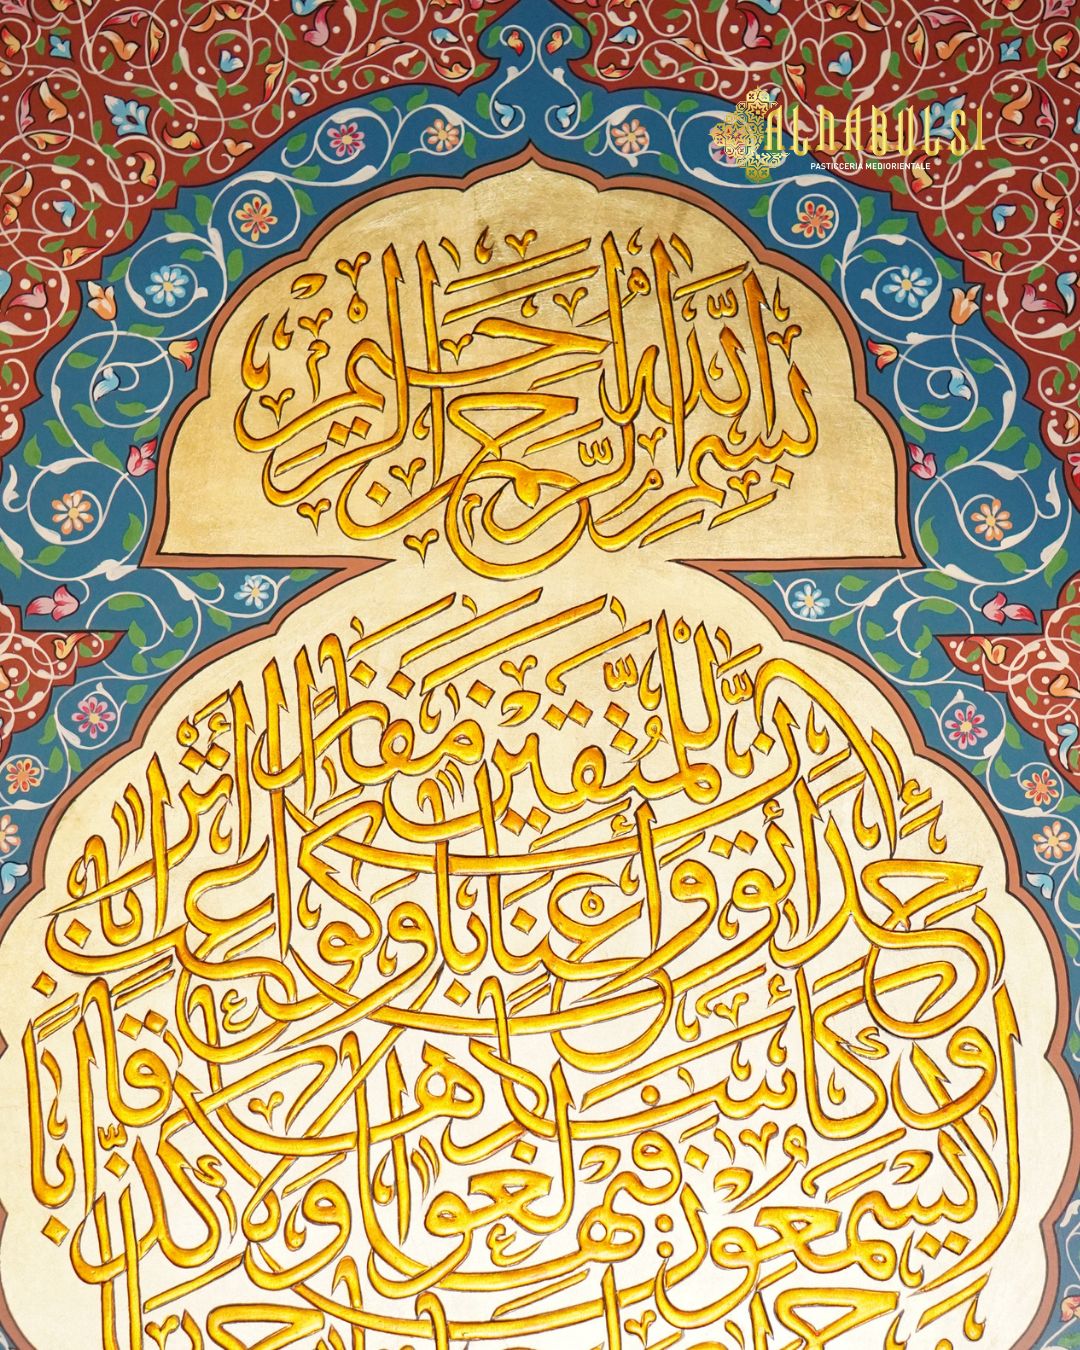 ALNABULSI
PASTICCERIA MEDIORIENTALE
بسم الله الرحمن الرحيم
إن للمتقين مفازا
حدائق وأعنابا وكواعب أترابا
وكأسا دهاقا
لا يسمعون فيها لغوا ولا كذابا